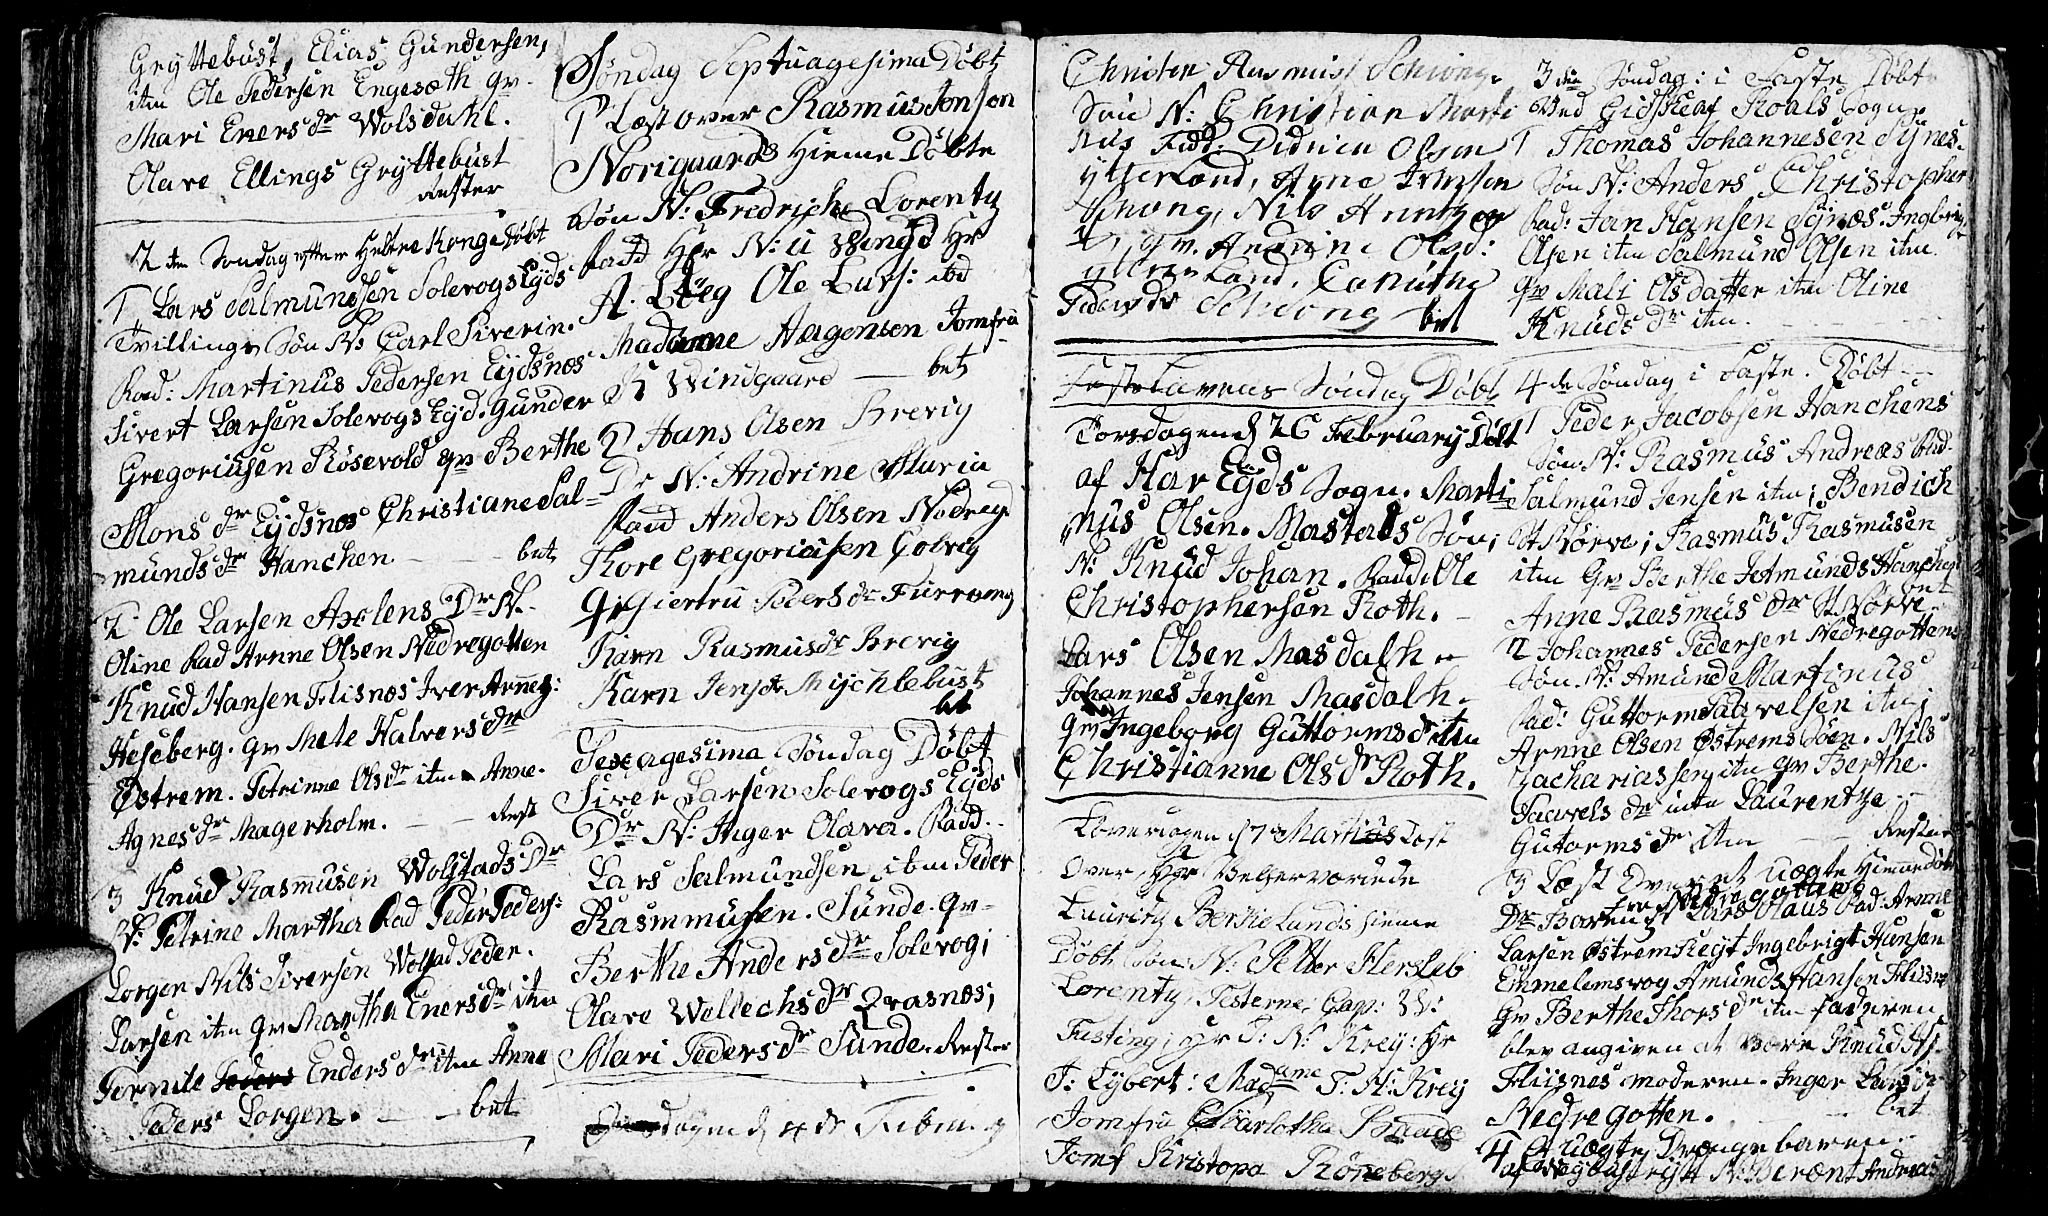 Gryttebust, Elias Gundersen,
itm Ole Pedersen Engesæth qv.
Mari Eners dr Wolsdahl.
Olave Ellings Gryttebust
Rester
2 den Søndag efter Hellre Konge Døbt
1 Lars Salmundsen Solevogs Eyds
Tvillinge Søn N: Carl Siverin.
Rad: Martinus Pedersen Eydsnos
Sivert Larsen Solevogs Eyd. Gunder
Gregoriusen Røsevold qv Berthe
Mons dr Eydsnos Christiane Sal=
munds dr Hanchen - - bet
2 Ole Larsen Axlens Dr N.
Oline Rad Arnne Olsen Nedregotten
Knud Hansen Flisnos Iver Arnes:
Heseberg. qv Mete Halvers dr
Østrem. Petrinne Ols dr itm Anne.
Agnes dr Magerholm. - - Rest
3 Knud Rasmusen Wolstads Dr
N: Petrine Martha Rad Peder Peders:
Lorgen Nils Siversen Wolstad Peder.
Larsen itm qv Martha Eners dr itm
Pernile Enders dr itm Anne
Peders Lorgen. - - bet
Søndag Septuagesima Døbt
1 Læst over Rasmus Jonson
Norigaards Hieme Døbte
Søn N: Fredriche Lorenty
Radd Hr N: u Wingd Hr
A. Løeg Ole Lars: ibd
Madamme Aagensen Jomfru
K Windgaard - bet
2 Hans Olsen Brevig
Dr N: Andrine Maria
Rand Anders Olsen Nedreg
Thore Gregoriusen Colvig
q: Giertru Peders dr Furreong
Karn Rasmus dr Brevig
Karn Jens dr Mychlebust
bt
Sexagesima Søndag Døbt
Siver Larsen Solevogs Eyds
Dr N: Inger Olava. Radd.
Lars Salmundsen itm Peder
Rasmmusen. Sunde. qv-
Berthe Anders dr Solevog;
Olave Wellechs dr Qvasnos;
Mari Peders dr Sunde. Rester
dagen d 4 de Februarij
Christen Rasmus Schiong
Søn N: Christian Marti
nus Fadd: Didrich Olsen
ytterland, Arne Iversen
Schong, Nils
qv. Andrine Ols d:
ytterland. Canuthe
Peders dr Schiong bet
Fastelavens Søndag Døbt
Torsdagen d 26 Februarij Døbt
af Har Eyds Sogn. Marti
nus Olsen. Mastads Søn;
N: Knud Johan. Radd: Ole
Christophersen Roth. -
Lars Olsen Masdalh -
Johannes Jensen Masdalh -
qv Ingeborg Guttorms d itm
Christianne Ols d Roth.
Løverdagen d 7 Martius Lest
Over Hr Velærværiede
Lauritz Bertie Lunds hieme
Døbte Søn N: Petter Hersleb
Lorenty, Testerne, Cap: W:
Fasting, Hr T: N: Krey: Hr
J: Lybert: Madame T: H: Krey
Jomfru Charlotha Baade
Jomf Kristopa Røneberg
3 die Søndag: i Faste Døbt
Ved Gidskeaf Roals Sogn
1 Thomas Johannesen Synes.
Søn N: Anders Christopher
Rad: Jan Hansen Synes. Ingbrig
Olsen itm Salmund Olsen itm
qv Mali Olsdatter itm Oline
Knuds dr itm. - - -
4 de Søndag i Faste. Døbt -
1 Peder Jacobsen Hanchens
Søn N: Rasmus Andreas Rad.
Salmund Jensen itm; Bendich
St Nørve; Rasmus Rasmusen
itm Gv Berthe Jetmunds Hanchen
Anne Rasmus dr St Nørve bet
2 Johannes Pedersen Nedregottens
Søn N: Amund Martinus
Rad: Guttorm Paavelsen itm;
Arnne Olsen Østrems Søen. Nils
Zachariassen itm qv Berthe.
Paavels dr itm Laurentze
Gutorms dr itm - - Rester
3 Læst Over et uægte Hiemmedøbt
fra Nedregotten
Dr Baren N Lars Olaus Rad: Arnne
Larsen Østremsleyt Ingebrigt Hansen
Emmelemsvog Amund Hansen Flisno
Gv Berthe Thors dr itm Faderen
blev angiven at være Knud Af.
Fliisnes moderen. Inger Lars dr
Nedregotten. - bet
4 Et uægte Drænge baren
af Wegbustrytt N: Berænt Andreas